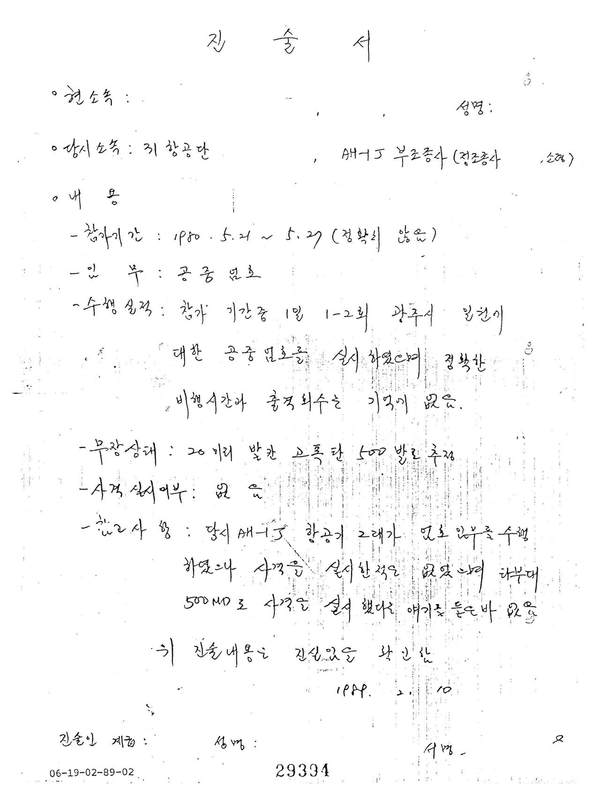 진 술 서
o 현소속 : 성명 :
o 당시소속 : 31 항공단 , AH-1J 부조종사 (정조종사
o 내 용
- 참가기간 : 1980. 5. 21 ~ 5. 27 (정확치 않음)
- 임 무 : 공중 엄호
- 수행실적 : 참가 기간중 1일 1-2회 광주시
대한 공중엄호를 실시하였으며 정확한
비행시간과 출격회수는 기억이 없음.
- 무장상태 : 20미리 발칸 고폭탄 500발로 추정
- 사격실시여부 : 없 음
- 참고사항 : 당시 AH-1J 항공기 2대가 엄호임무를 수행
하였으나 사격을 실시한적은 없었으며 타부대
500MD로 사격을 실시했다는 얘기를 들은바 없음
위 진술내용은 진실임을 확인함
1989. 2. 10
진술인 계급 : 성명 : 서명
06-19-02-89-02
29394